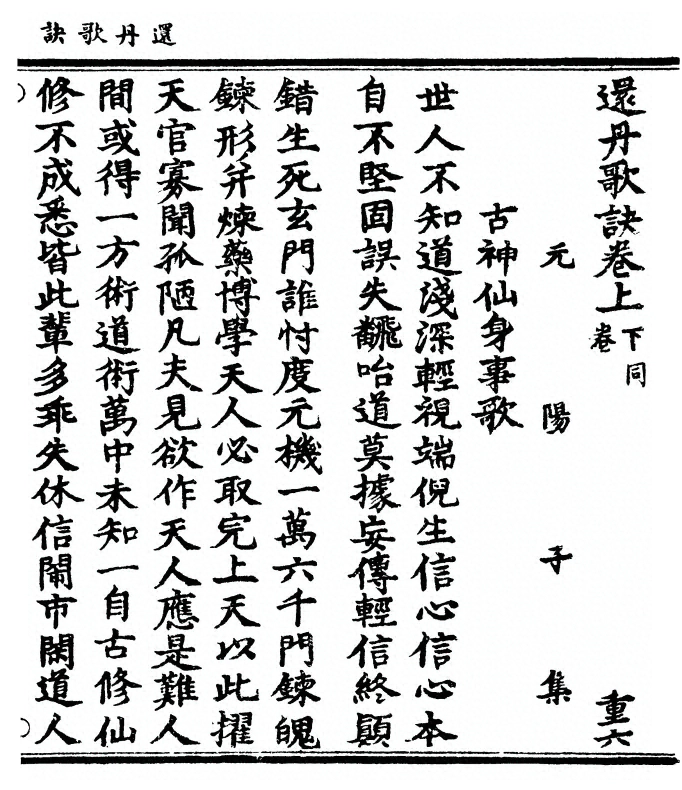 還丹歌訣
還丹歌訣卷上 下卷同 重六
元陽子集
古神仙身事歌
世人不知道淺深輕視端倪生信心信心本
自不堅固誤失飜咍道莫據妄傳輕信終顛
錯生死玄門誰忖度元機一萬六千門鍊魄
鍊形并煉藥博學天人必取完上天以此擢
天官寡聞孤陋凡夫見欲作天人應是難人
間或得一方術道術萬中未知一自古修仙
修不成悉皆此輩多乖失休信鬧市閑道人